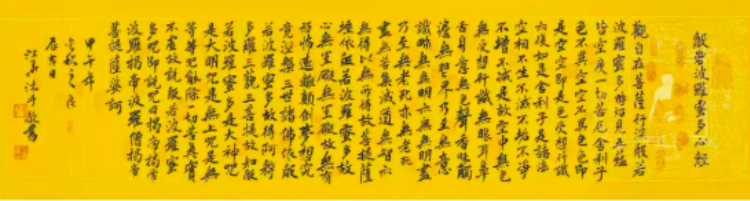 般若波羅蜜多心經
觀自在菩薩行深般若
波羅蜜多時照見五蘊
皆空度一切苦厄舍利子
色不異空空不異色色即
是空空即是色受想行識
亦復如是舍利子是諸法
空相不生不滅不垢不淨
不增不減是故空中無色
無受想行識無眼耳鼻
舌身意無色聲香味觸
法無眼界乃至無意
識界無無明亦無無明盡
乃至無老死亦無老死
盡無苦集滅道無智亦
無得以無所得故菩提薩
埵依般若波羅蜜多故
心無罣礙無罣礙故無有
恐怖遠離顛倒夢想究
竟涅槃三世諸佛依般
若波羅蜜多故得阿耨
多羅三藐三菩提故知般
若波羅蜜多是大神咒
是大明咒是無上咒是無
等等咒能除一切苦真實
不虛故說般若波羅蜜
多咒即說咒曰揭帝揭帝
波羅揭帝波羅僧揭帝
菩提薩婆訶
甲午年
敬書